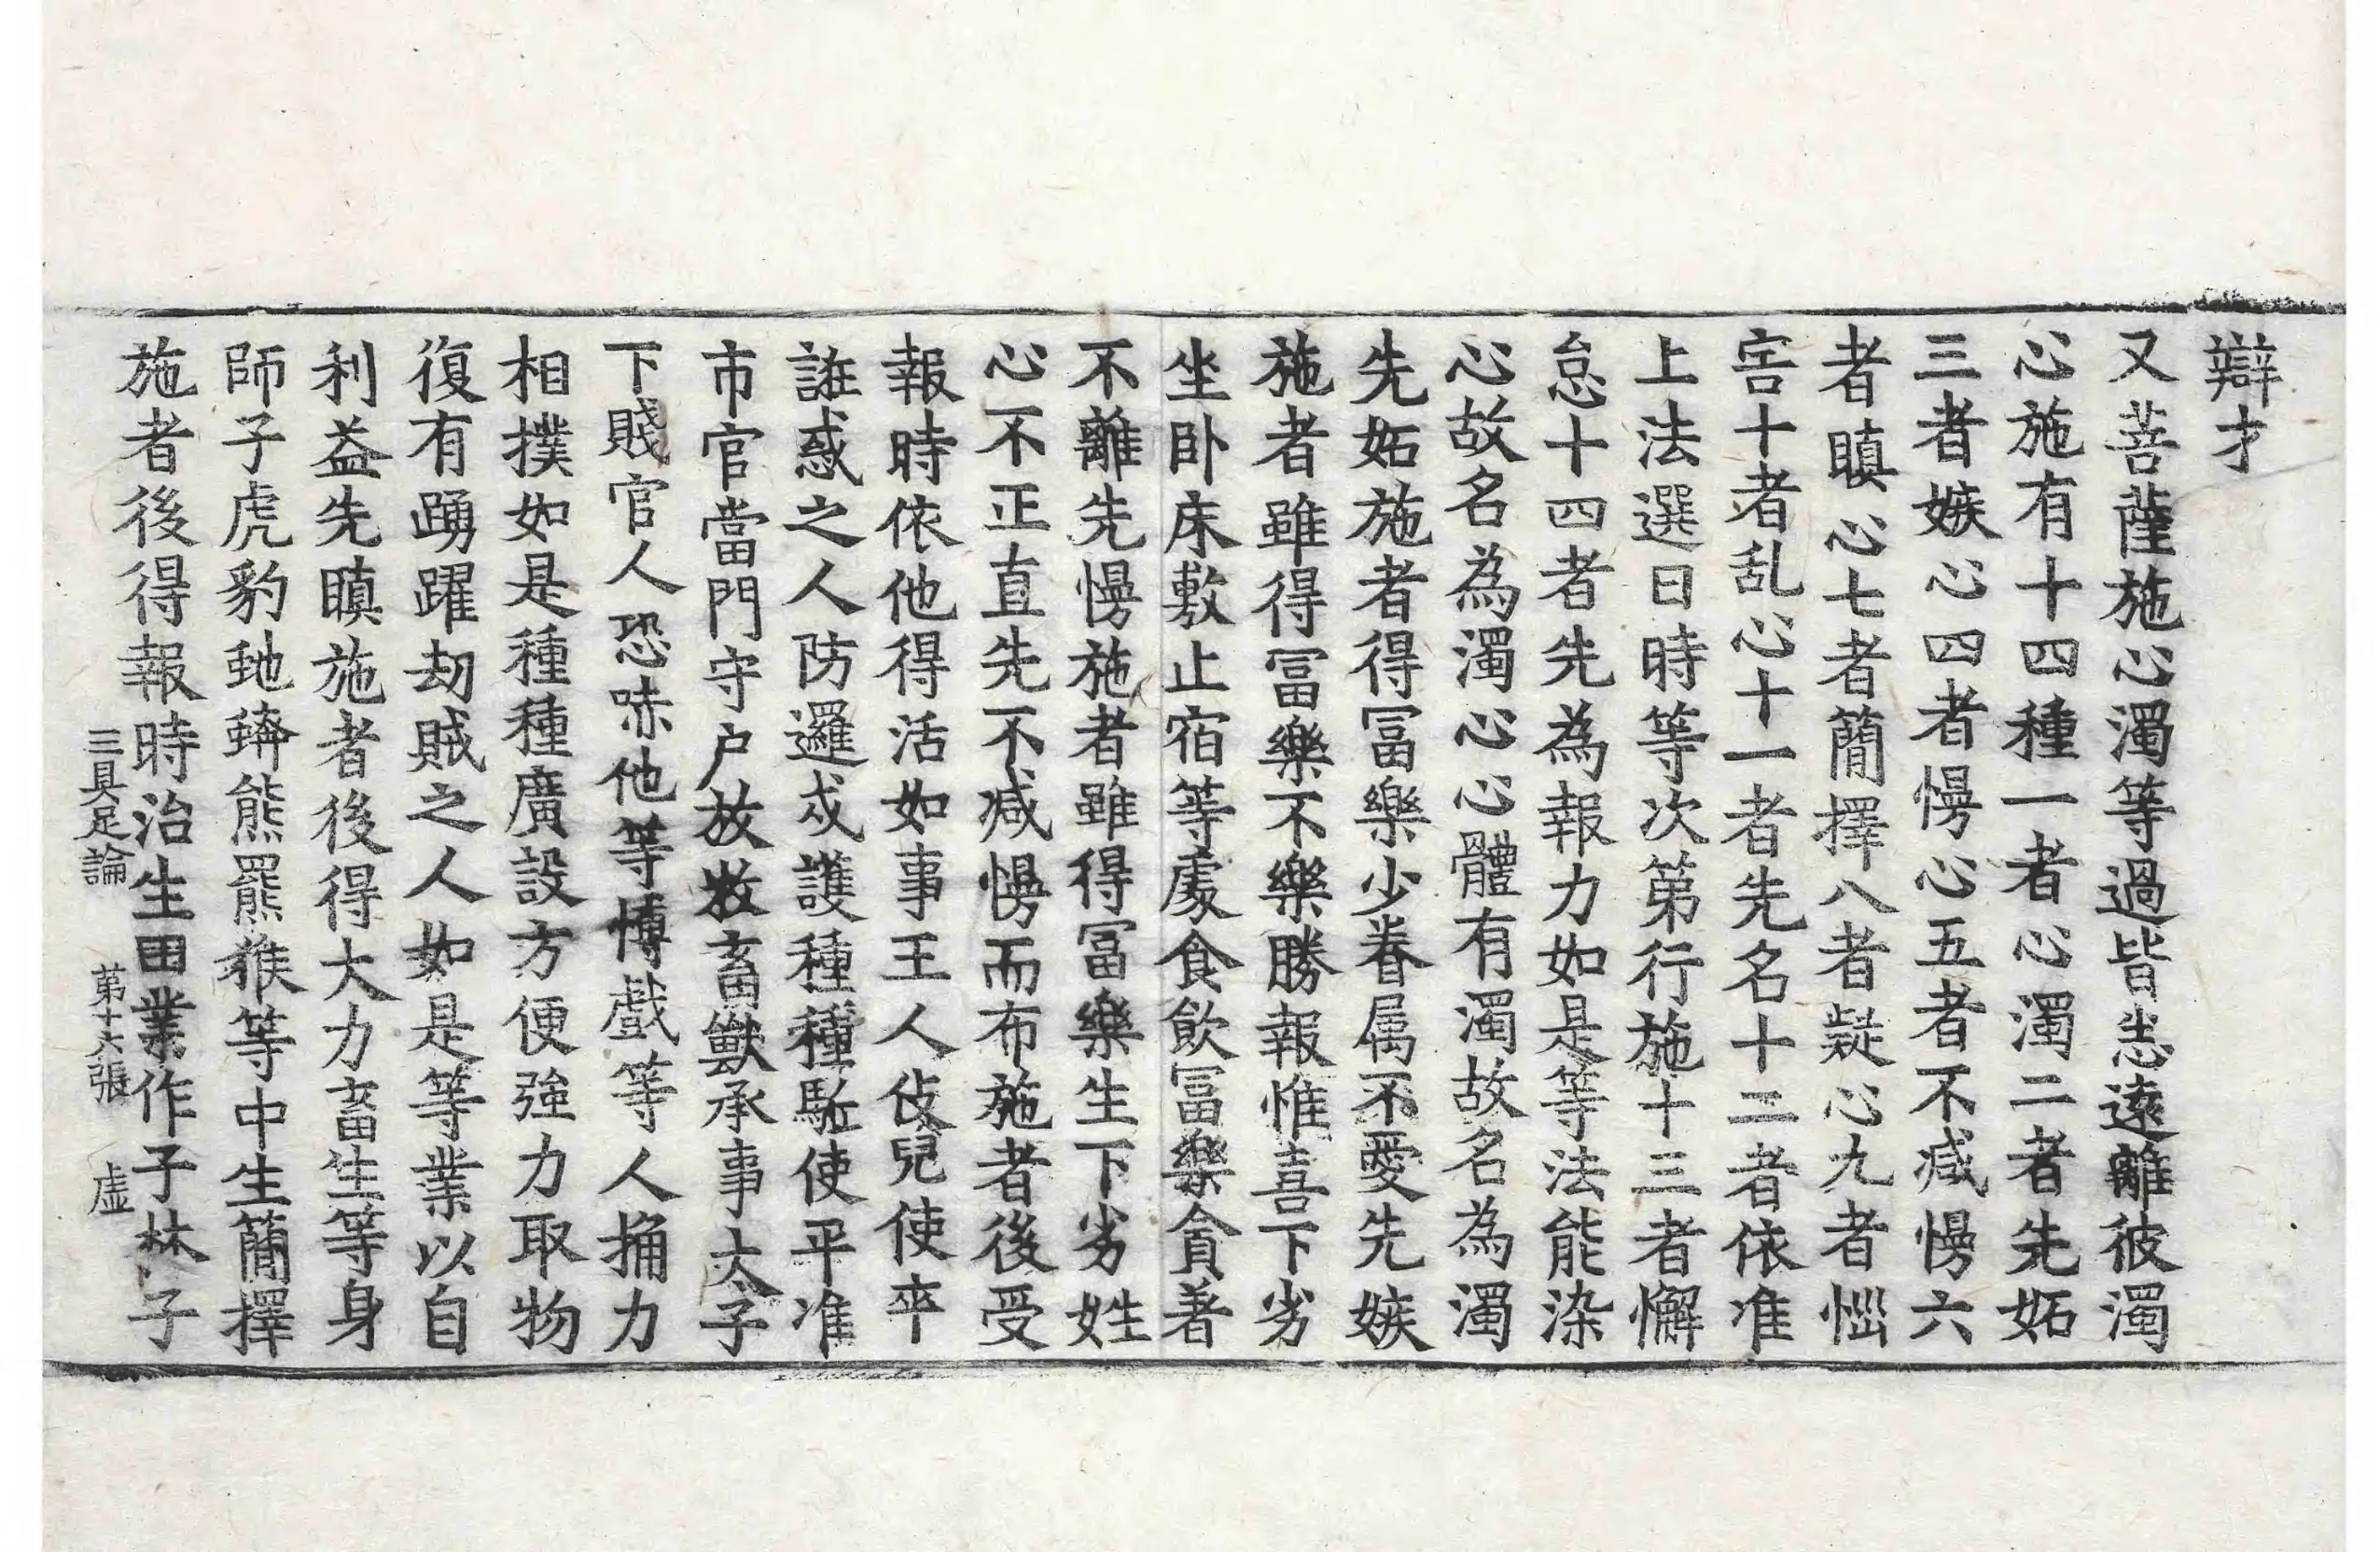 辯才
又菩薩施心濁等過皆悉遠離彼濁
心施有十四種一者心濁二者先妬
三者嫉心四者慢心五者不減慢六
者瞋心七者簡擇八者疑心九者惱
害十者乱心十一者先名十二者依准
上法選日時等次第行施十三者懈
怠十四者先為報力如是等法能染
心故名為濁心心體有濁故名為濁
先妬施者得冨樂少眷属不愛先嫉
施者雖得冨樂不樂勝報惟喜下劣
坐卧床敷止宿等處食飲冨樂貪著
不離先慢施者雖得冨樂生下劣姓
心不正直先不減慢而布施者後受
報時依他得活如事王人伎兒使卒
誑惑之人防邏戍護種種駈使平准
市官當門守户放牧畜獸承事太子
下賤官人恐怖他等博戲等人捔力
相撲如是種種廣設方便強力取物
復有踊躍劫賊之人如是等業以自
利益先瞋施者後得大力畜生等身
師子虎豹虵蟒熊羆猴等中生簡擇
施者後得報時治生田業作子林子
三具足論 第十六張 虛